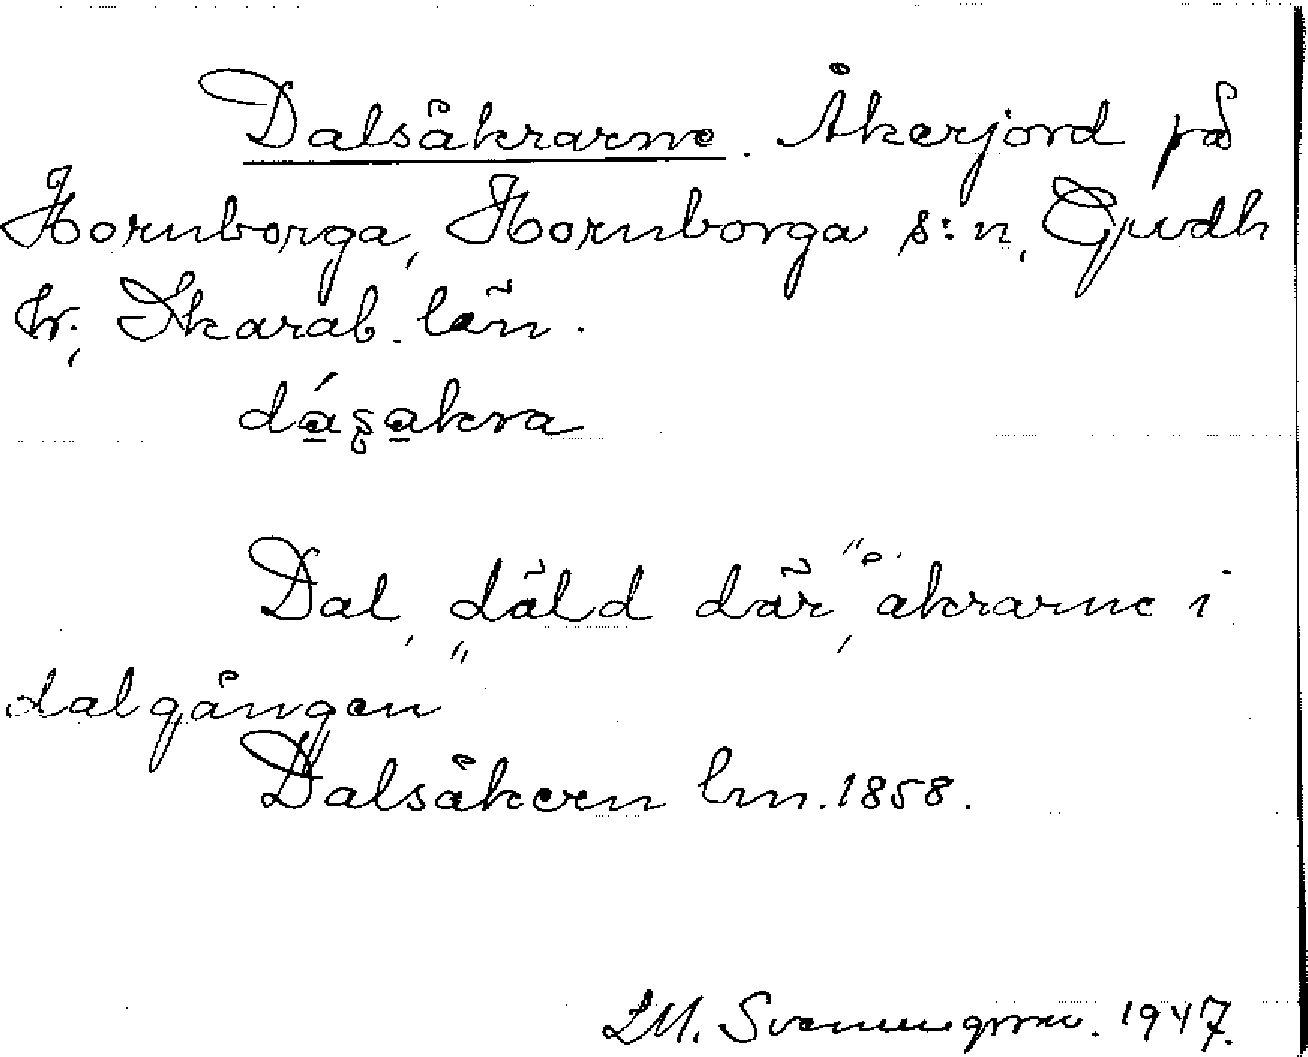 Dalsåkrarne. Åkerjord på
Hornborga, Hornborga s:n, Gudh
hr; Skarab. län.
dásakra
Dal, däld där, "åkrarne i
dalgången"
Dalsåkern lm. 1858.
1947.